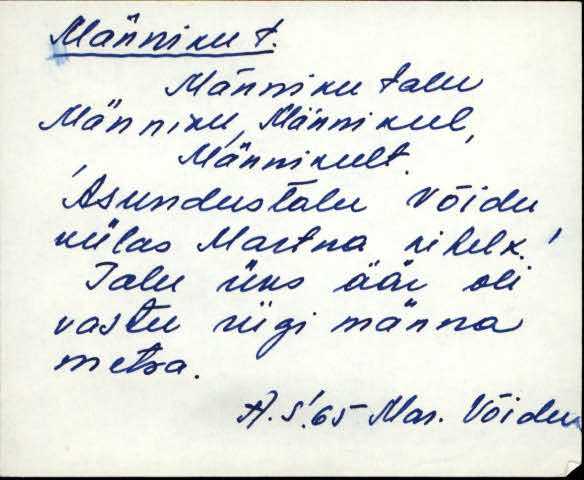 Männiku t.
Männiku talu
Männiku, Männikul,
Männikult.
'Asundustalu Võidu
külas Martna kihelk.'
Talu üks äär oli
vastu riigi männa
metsa.
A. S'.65 Mar. Võidu